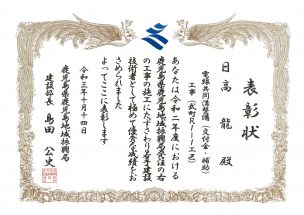 表彰状
日高 龍 殿
電線共同溝整備(交付金・補助)
工事(武町R1-1工区)
あなたは令和二年度における
鹿児島県鹿児島地域振興局発注の右
の工事の施工にたずさわり若手建設
技術者として極めて優秀な成績をお
さめられました
よってここに表彰します
令和三年十月十四日
鹿児島県鹿児島地域振興局
建設部長 島田 公史